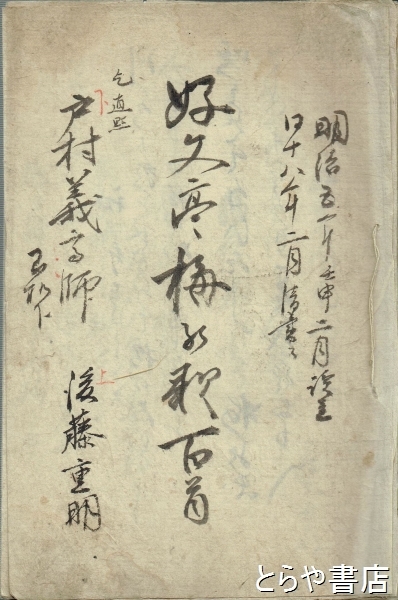 明治五年壬申二月詠之
口十八年二月清書之
好文亭梅の歌百首
乞直点
戸村義高師
玉机下
後藤重明
とらや書店